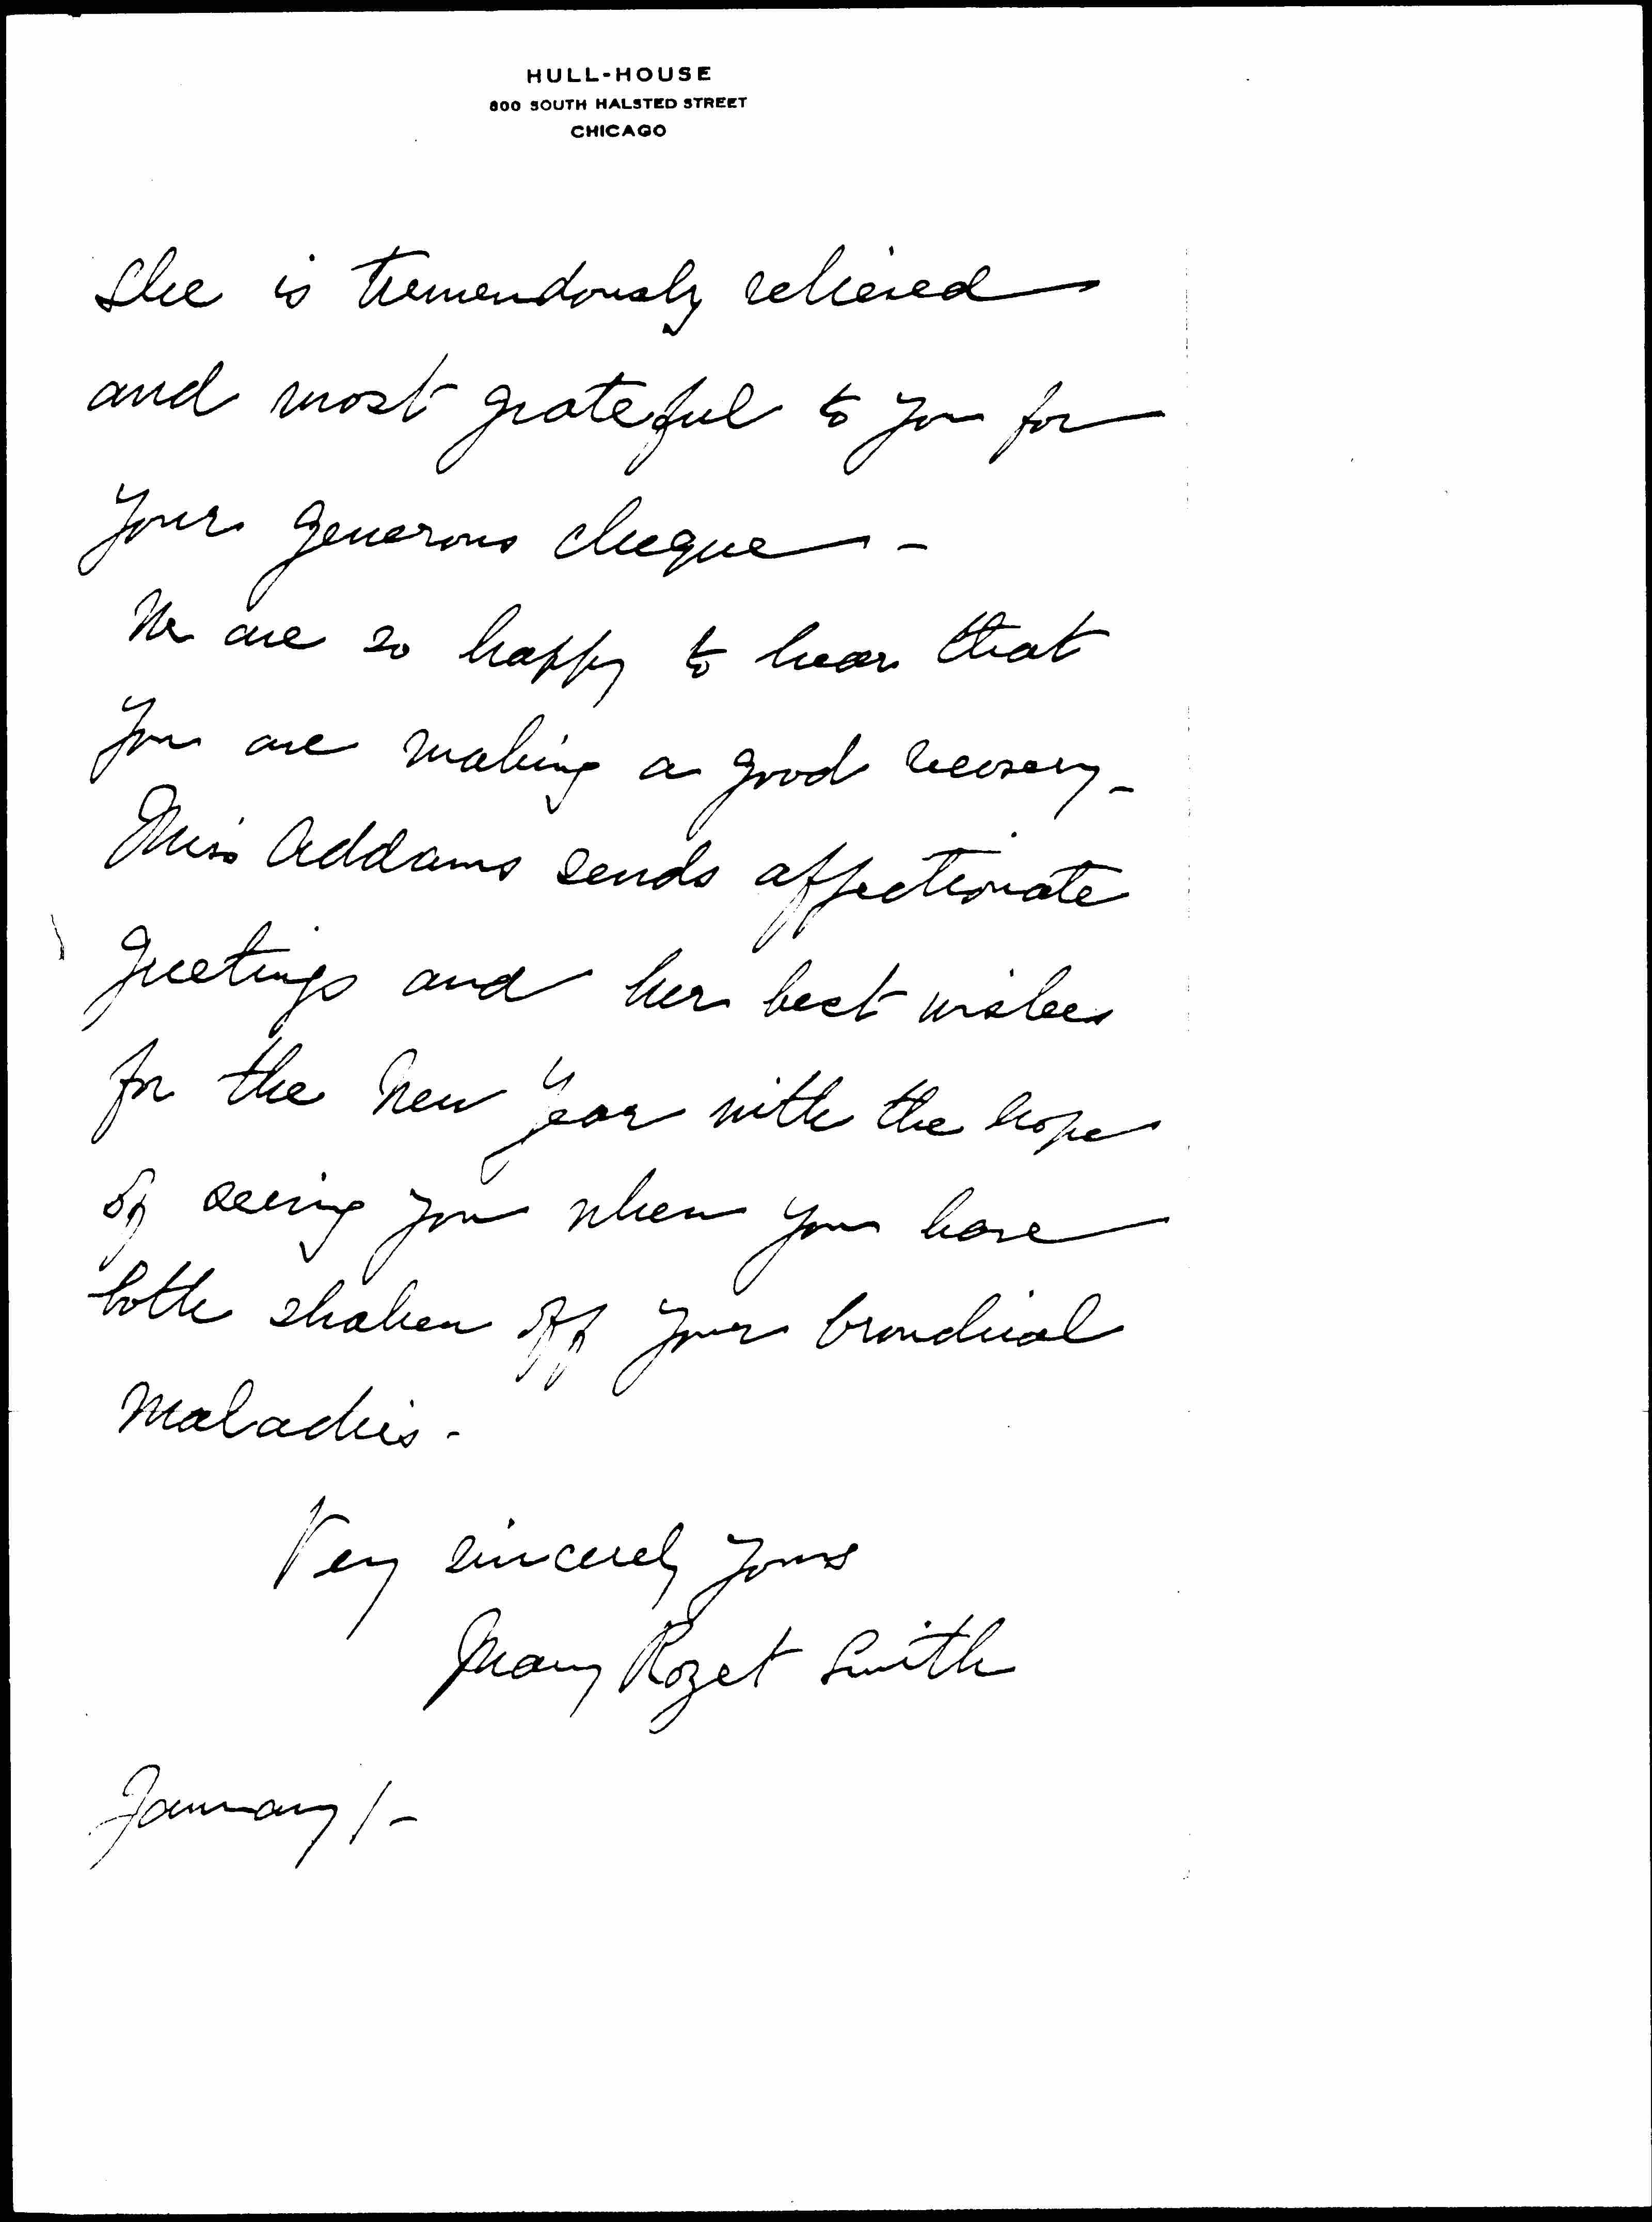 HULL-HOUSE
800 SOUTH HALSTED STREET
CHICAGO
She is tremendously relieved
and most grateful to you for
your generous cheque -
We are so happy to hear that
you are making a good recovery -
Miss Addams sends affectionate
greetings and her best wishes
for the New Year with the hope
of seeing you when you have
both shaken off your bronchial
maladies -
Very sincerely yours
Mary Rozet Smith
January 1 -